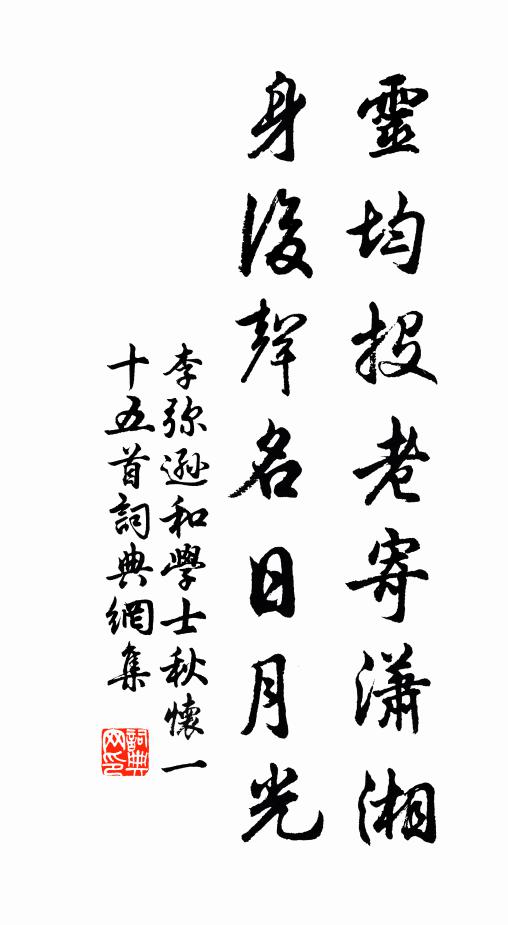 靈均投老寄瀟湘
身後聲名日月光
李弥遜和學士秋懷一
十五首詞典網集
詞典
网印